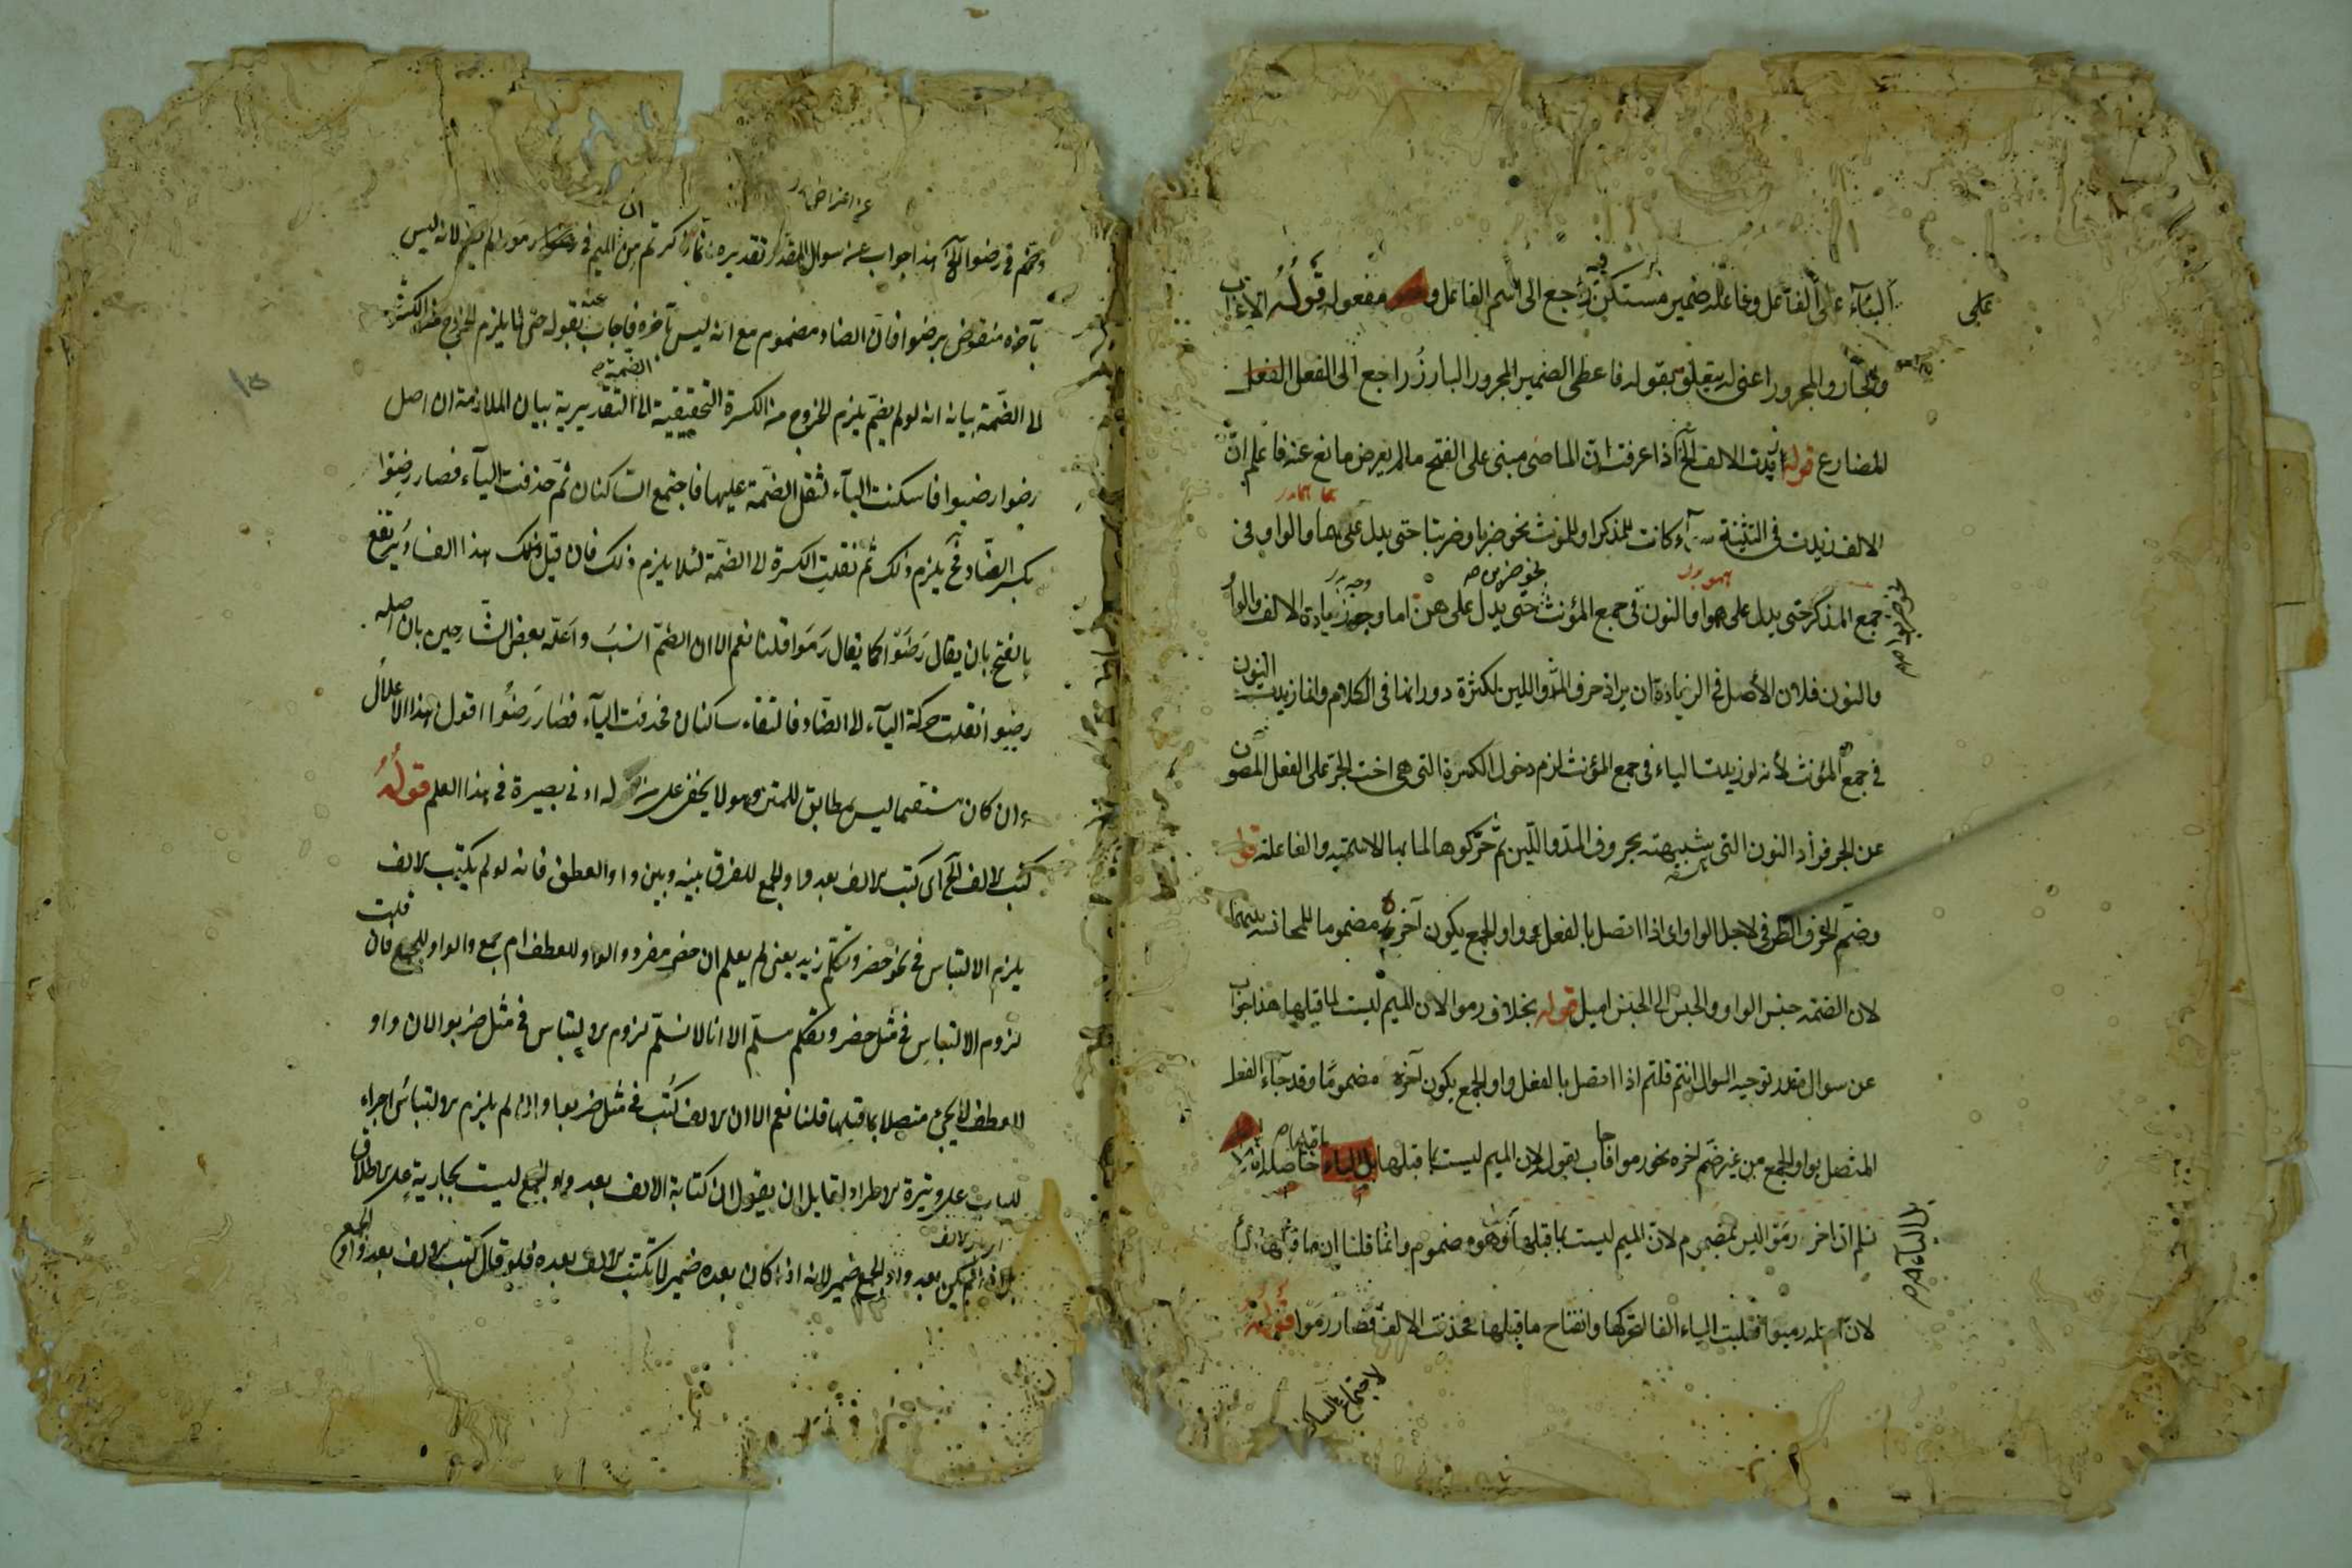 البناء على الفاعل وفاعله ضمير مستكن فيه راجع الى اسم الفاعل ومفعوله قوله الاعراب
والجار والمجرور اعنى له يتعلق بقوله فاعطى الضمير المجرور البارز راجع الى الفعل الفعل
المضارع قوله زيدت الالف الخ اذا عرفت ان الماضى مبنى على الفتح مالم يعرض مانع عنه فاعلم ان
الالف زيدت فى التثنية سواء كانت للمذكر او للمونث نحو ضربا وضربتا حتى يدل على هما والواو فى
جمع المذكر حتى يدل على هموا والنون فى جمع المؤنث حتى يدل على هن اما وجه زيادة الالف والواو
نحو ضربوا صح
نحو ضربن صح
والنون فلان الأصل فى الزيادة ان يزاد حرف المد واللين لكثرة دورانها فى الكلام وانما زيدت النون
فى جمع المؤنث لأنه لو زيدت الياء فى جمع المؤنث لزم دخول الكسرة التى هى اخت الجر على الفعل المصون
عن الجر فزاد النون التى شبيهته بحروف المد واللين ثم حركوها لما بها الاسمية والفاعلة قوله
وضم الحرف الطرفى لاجل الواو اى اذا اتصل بالفعل واو الجمع يكون آخره مضموما للمجانسة بينهما
لان الضمة جنس الواو والجنس الى الجنس اميل قوله بخلاف رموا لان الميم ليست لما قبلها هذا جواب
عن سوال مقدر توجيه السوال انتم قلتم اذا اتصل بالفعل واو الجمع يكون آخره مضموما وقد جاء الفعل
المتصل بواو الجمع من غير ضم اخره نحو رموا فاجاب بقوله لان الميم ليست بما قبلها بل الياء حاصله انا لا
نسلم ان اخر رموا ليس بمضموم لان الميم ليست بما قبلها وهو مضموم وانما قلنا ان ما قبلها
بل الياء صح
لان اصله رميوا فقلبت الياء الفا لتحركها وانفتاح ما قبلها فحذفت الالف فصار رموا قوله
لاجتماع الساكنين
وضم فى رضوا الخ هذا جواب عن سوال المقدر تقديره ان ما ذكرتم من ان الميم فى رموا لم يضم لانه ليس
بآخره منقوض برضوا فان الضاد مضموم مع انه ليس بآخره فاجاب عنه بقوله حتى لا يلزم الخروج من الكسرة
الى الضمة بيانه انه لو لم يضم يلزم الخروج من الكسرة التحقيقية الى الضمة التقديرية بيان الملازمة ان اصل
رضوا رضيوا فاسكنت الياء لثقل الضمة عليها فاجتمع الساكنان ثم حذفت الياء فصار رضوا
بكسر الضاد فح يلزم ذلك ثم نقلبت الكسرة الى الضمة لئلا يلزم ذلك فان قيل ذلك هذا الفساد يرتفع
بالفتح بان يقال رضوا كما يقال رموا قلنا نعم الا ان الضم انسب واعله بعض الشارحين بان اصله
رضيوا نقلت حركة الياء الى الضاد فالتقاء ساكنان فحذفت الياء فصار رضوا اقول هذا الاعلال
وان كان مستقيما ليس بمطابق للمتن وهو لا يخفى على من له ادنى بصيرة فى هذا العلم قوله
كتب الالف الخ اى كتب الالف بعد واو الجمع للفرق بينه وبين واو العطف فانه لو لم يكتب الالف
يلزم الالتباس فى نحو حضر وتكلم زيد يعنى لم يعلم ان حضر مفرد والواو للعطف ام جمع والواو للجمع فان قلت
لزوم الالتباس فى مثل حضر وتكلم مسلم الا انا لا نسلم لزوم الالتباس فى مثل ضربوا لان واو
للعطف لا يجئ متصلا بما قبلها قلنا نعم الا ان الالف كتب فى مثل ضربوا وان لم يلزم الالتباس اجراء
للباب على وتيرة الاطراد لقايل ان يقول ان كتابة الالف بعد واو الجمع ليست بجارية على الاطلاق
بل اذا لم يكن بعد واو الجمع ضمير لانه اذا كان بعده ضمير لا تكتب الالف بعده فلو قال كتب الالف بعد واو الجمع